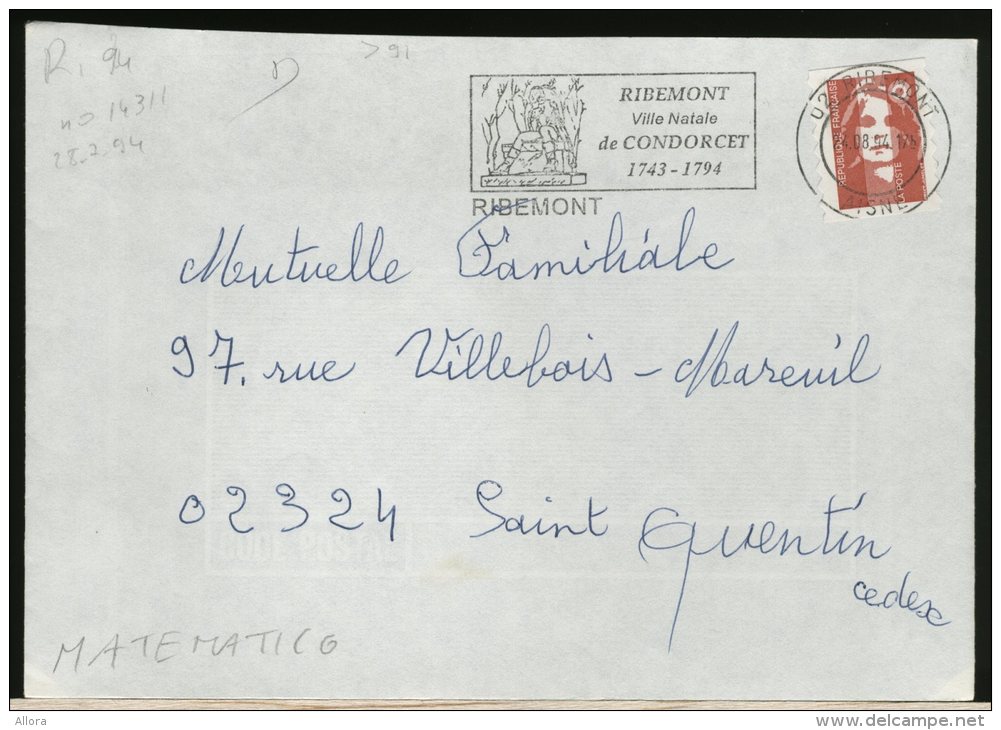 R, 94
> 91
no 14311
28.2.94
RIBEMONT
Ville Natale
de CONDORCET
1743 - 1794
RIBEMONT
02 RIBEMONT
.08.94
AISNE
REPUBLIQUE FRANÇAISE
LA POSTE
Mutuelle Familiale
97, rue Villebois - Mareuil
02324 Saint Quentin
cedex
MATEMATICO
Allora
delcampe.net